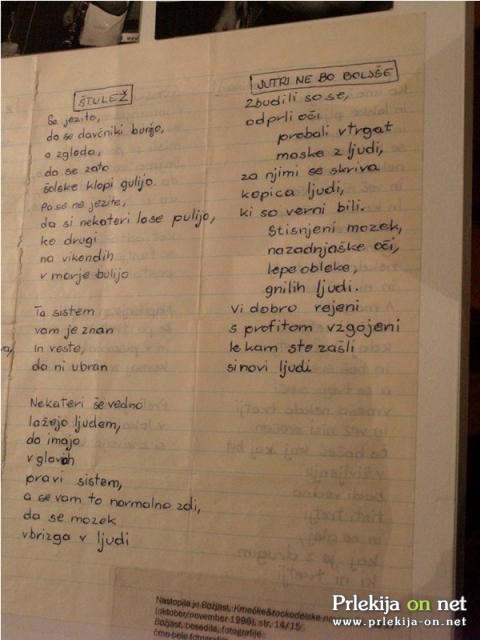 ŠTULEŽ
Se jezite,
da se davčniki bunijo,
a zgleda,
da se zato
šolske klopi gulijo.
Pa se ne jezite,
da si nekateri lase pulijo,
ko drugi
na vikendih
v morje buljio
Ta sistem
vam je znan
in veste,
da ni ubran
Nekateri še vedno
lažejo ljudem,
da imajo
v glavah
pravi sistem,
a se vam to normalno zdi,
da se mozek
vbrizga v ljudi
JUTRI NE BO BOLJŠE
Zbudili so se,
odprli oči
probali vtrgat
maske z ljudi,
za njimi se skriva
kopica ljudi,
ki so verni bili.
Stisnjeni mozek,
nazadnjaške oči,
lepe obleke,
gnilih ljudi.
vi dobro rejeni
s profitom vzgojeni
le kam ste zašli
sinovi ljudi
Nastopila je Božjast, Kmečke&rockodelske
(oktober/november 1986), str. 14/15
Božjast, besedila, fotografije
črno bele fotografije
Prlekija on net
www.prlekija-on.net